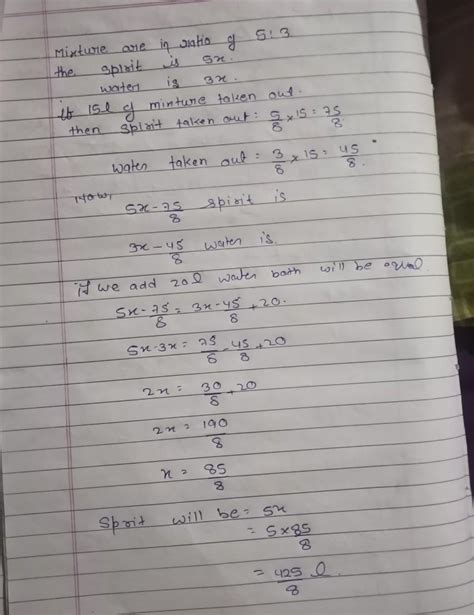 Mixture are in ratio of 5:3
the spirit is 5x.
water is 3x.
15l of mixture taken out.
then spirit taken out = 5/8 × 15 = 75/8
water taken out = 3/8 × 15 = 45/8.
now,
5x - 75/8 spirit is
3x - 45/8 water is.
if we add 20l water both will be equal
5x - 75/8 = 3x - 45/8 + 20.
5x - 3x = 75/8 - 45/8 + 20
2x = 30/8 + 20
2x = 190/8
x = 85/8
Sprit will be = 5x
= 5 × 85/8
= 425/8 l.